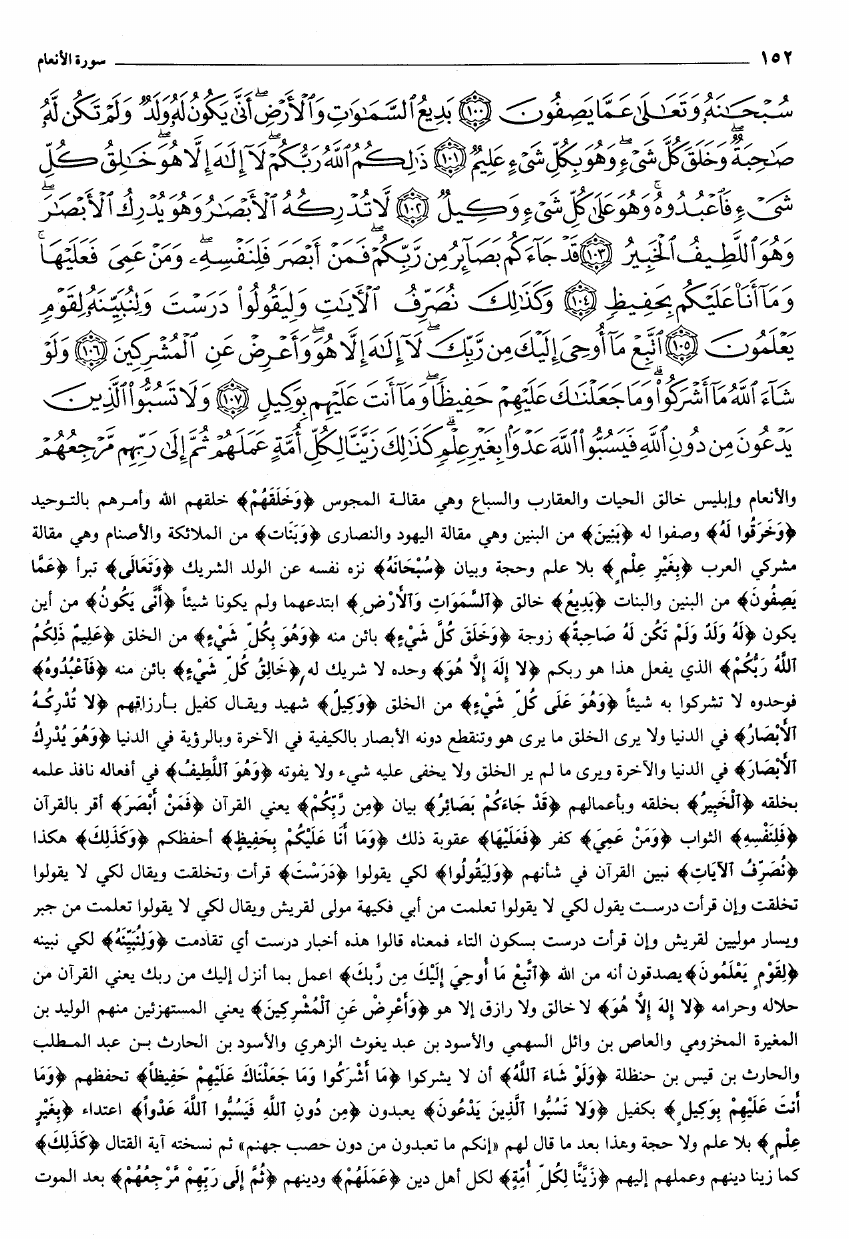 ١٥٢ سورة الأنعام
سُبْحَٰنَهُۥ وَتَعَٰلَىٰ عَمَّا يَصِفُونَ ﴿١٠٠﴾ بَدِيعُ ٱلسَّمَٰوَٰتِ وَٱلْأَرْضِ ۖ أَنَّىٰ يَكُونُ لَهُۥ وَلَدٌ وَلَمْ تَكُن لَّهُۥ
صَٰحِبَةٌ ۖ وَخَلَقَ كُلَّ شَىْءٍ ۖ وَهُوَ بِكُلِّ شَىْءٍ عَلِيمٌ ﴿١٠١﴾ ذَٰلِكُمُ ٱللَّهُ رَبُّكُمْ ۖ لَآ إِلَٰهَ إِلَّا هُوَ ۖ خَٰلِقُ كُلِّ
شَىْءٍ فَٱعْبُدُوهُ ۚ وَهُوَ عَلَىٰ كُلِّ شَىْءٍ وَكِيلٌ ﴿١٠٢﴾ لَّا تُدْرِكُهُ ٱلْأَبْصَٰرُ وَهُوَ يُدْرِكُ ٱلْأَبْصَٰرَ ۖ
وَهُوَ ٱللَّطِيفُ ٱلْخَبِيرُ ﴿١٠٣﴾ قَدْ جَآءَكُم بَصَآئِرُ مِن رَّبِّكُمْ ۖ فَمَنْ أَبْصَرَ فَلِنَفْسِهِۦ ۖ وَمَنْ عَمِىَ فَعَلَيْهَا ۚ
وَمَآ أَنَا۠ عَلَيْكُم بِحَفِيظٍ ﴿١٠٤﴾ وَكَذَٰلِكَ نُصَرِّفُ ٱلْآيَٰتِ وَلِيَقُولُوا۟ دَرَسْتَ وَلِنُبَيِّنَهُۥ لِقَوْمٍ
يَعْلَمُونَ ﴿١٠٥﴾ ٱتَّبِعْ مَآ أُوحِىَ إِلَيْكَ مِن رَّبِّكَ ۖ لَآ إِلَٰهَ إِلَّا هُوَ ۖ وَأَعْرِضْ عَنِ ٱلْمُشْرِكِينَ ﴿١٠٦﴾ وَلَوْ
شَآءَ ٱللَّهُ مَآ أَشْرَكُوا۟ ۗ وَمَا جَعَلْنَٰكَ عَلَيْهِمْ حَفِيظًا ۖ وَمَآ أَنتَ عَلَيْهِم بِوَكِيلٍ ﴿١٠٧﴾ وَلَا تَسُبُّوا۟ ٱلَّذِينَ
يَدْعُونَ مِن دُونِ ٱللَّهِ فَيَسُبُّوا۟ ٱللَّهَ عَدْوًۢا بِغَيْرِ عِلْمٍ ۗ كَذَٰلِكَ زَيَّنَّا لِكُلِّ أُمَّةٍ عَمَلَهُمْ ثُمَّ إِلَىٰ رَبِّهِم مَّرْجِعُهُمْ
والأنعام وإبليس خالق الحيات والعقارب والسباع وهي مقالة المجوس ﴿وَخَلَقَهُمْ﴾ خلقهم الله وأمرهم بالتوحيد
﴿وَخَرَقُوا لَهُ﴾ وصفوا له ﴿بَنِينَ﴾ من البنين وهي مقالة اليهود والنصارى ﴿وَبَنَات﴾ من الملائكة والأصنام وهي مقالة
مشركي العرب ﴿بِغَيْرِ عِلْمٍ﴾ بلا علم وحجة وبيان ﴿سُبْحَانَهُ﴾ نزه نفسه عن الولد الشريك ﴿وَتَعَالَى﴾ تبرأ ﴿عَمَّا
يَصِفُونَ﴾ من البنين والبنات ﴿بَدِيعُ﴾ خالق ﴿ٱلسَّمَوَاتِ وَٱلأَرْضِ﴾ ابتدعهما ولم يكونا شيئاً ﴿أَنَّى يَكُونُ﴾ من أين
يكون ﴿لَهُ وَلَدٌ وَلَمْ تَكُن لَهُ صَاحِبةٌ﴾ زوجة ﴿وَخَلَقَ كُلَّ شَيْءٍ﴾ بائن منه ﴿وَهُوَ بِكُلِّ شَيْءٍ﴾ من الخلق ﴿عَلِيمٌ ذَلِكُمُ
ٱللَّهُ رَبُّكُمْ﴾ الذي يفعل هذا هو ربكم ﴿لا إِلَهَ إِلاَّ هُوَ﴾ وحده لا شريك له ﴿خَالِقُ كُلِّ شَيْءٍ﴾ بائن منه ﴿فَٱعْبُدُوهُ﴾
فوحدوه لا تشركوا به شيئاً ﴿وَهُوَ عَلَى كُلِّ شَيْءٍ﴾ من الخلق ﴿وَكِيلٌ﴾ شهيد ويقال كفيل بأرزاقهم ﴿لا تُدْرِكُهُ
ٱلأَبْصَارُ﴾ في الدنيا ولا يرى الخلق ما يرى هو وتنقطع دونه الأبصار بالكيفية في الآخرة وبالرؤية في الدنيا ﴿وَهُوَ يُدْرِكُ
ٱلأَبْصَارَ﴾ في الدنيا والآخرة ويرى ما لم ير الخلق ولا يخفى عليه شيء ولا يفوته ﴿وَهُوَ ٱللَّطِيفُ﴾ في أفعاله نافذ علمه
بخلقه ﴿ٱلْخَبِيرُ﴾ بخلقه وبأعمالهم ﴿قَدْ جَاءَكُمْ بَصَائِرُ﴾ بيان ﴿مِن رَّبِّكُمْ﴾ يعني القرآن ﴿فَمَنْ أَبْصَرَ﴾ أقر بالقرآن
﴿فَلِنَفْسِهِ﴾ الثواب ﴿وَمَنْ عَمِيَ﴾ كفر ﴿فَعَلَيْهَا﴾ عقوبة ذلك ﴿وَمَا أَنَا عَلَيْكُمْ بِحَفِيظٍ﴾ أحفظكم ﴿وَكَذَلِكَ﴾ هكذا
﴿نُصَرِّفُ ٱلآيَاتِ﴾ نبين القرآن في شأنهم ﴿وَلِيَقُولُوا﴾ لكي يقولوا ﴿دَرَسْتَ﴾ قرأت وتخلقت ويقال لكي لا يقولوا
تخلقت وإن قرأت درست يقول لكي لا يقولوا تعلمت من أبي فكيهة مولى لقريش ويقال لكي لا يقولوا تعلمت من جبر
ويسار موليين لقريش وإن قرأت درست بسكون التاء فمعناه قالوا هذه أخبار درست أي تقادمت ﴿وَلِنُبَيِّنَهُ﴾ لكي نبينه
﴿لِقَوْمٍ يَعْلَمُونَ﴾ يصدقون أنه من الله ﴿ٱتَّبِعْ مَا أُوحِيَ إِلَيْكَ مِن رَّبِّكَ﴾ اعمل بما أنزل إليك من ربك يعني القرآن من
حلاله وحرامه ﴿لا إِلهَ إِلاَّ هُوَ﴾ لا خالق ولا رازق إلا هو ﴿وَأَعْرِضْ عَنِ ٱلْمُشْرِكِينَ﴾ يعني المستهزئين منهم الوليد بن
المغيرة المخزومي والعاص بن وائل السهمي والأسود بن عبد يغوث الزهري والأسود بن الحارث بن عبد المطلب
والحارث بن قيس بن حنظلة ﴿وَلَوْ شَاءَ ٱللَّهُ﴾ أن لا يشركوا ﴿مَا أَشْرَكُوا وَمَا جَعَلْنَاكَ عَلَيْهِمْ حَفِيظاً﴾ تحفظهم ﴿وَمَا
أَنتَ عَلَيْهِمْ بِوَكِيلٍ﴾ بكفيل ﴿وَلا تَسُبُّوا ٱلَّذِينَ يَدْعُونَ﴾ يعبدون ﴿مِن دُونِ ٱللَّهِ فَيَسُبُّوا ٱللَّهَ عَدْواً﴾ اعتداء ﴿بِغَيْرِ
عِلْمٍ﴾ بلا علم ولا حجة وهذا بعد ما قال لهم «إنكم ما تعبدون من دون حصب جهنم» ثم نسخته آية القتال ﴿كَذَلِكَ﴾
كما زينا دينهم وعملهم إليهم ﴿زَيَّنَّا لِكُلِّ أُمَّةٍ﴾ لكل أهل دين ﴿عَمَلَهُمْ﴾ ودينهم ﴿ثُمَّ إِلَى رَبِّهِمْ مَّرْجِعُهُمْ﴾ بعد الموت